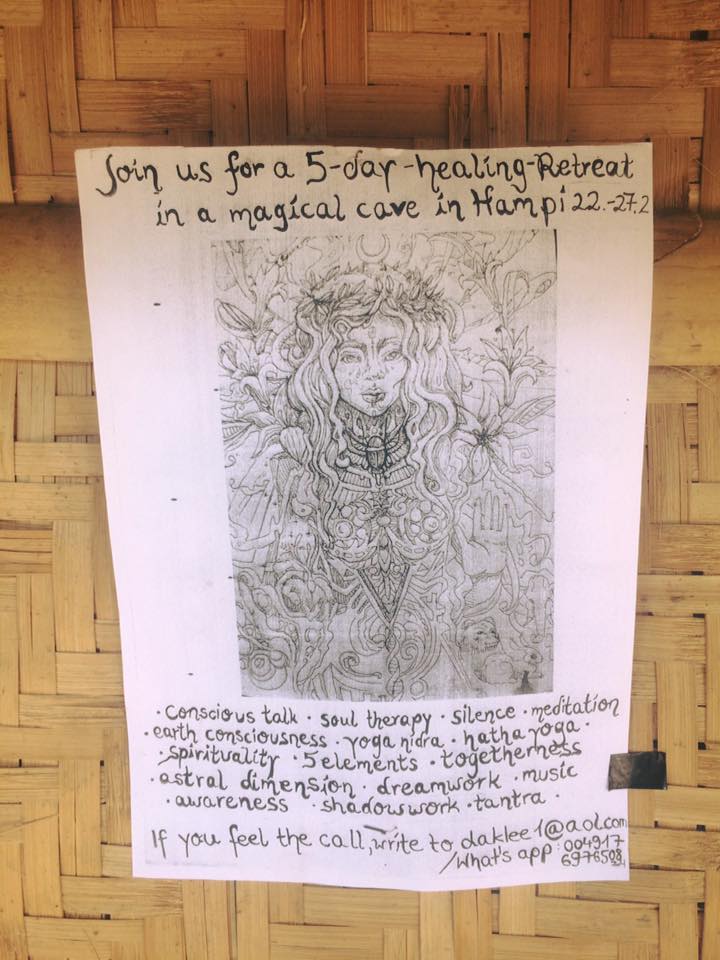 Join us for a 5-day-healing-Retreat
in a magical cave in Hampi 22.-27.2
· conscious talk · soul therapy · silence · meditation
· earth consciousness · yoga nidra · hatha yoga ·
· spirituality · 5 elements · togetherness
· astral dimension · dreamwork · music
· awareness · shadowswork · tantra ·
If you feel the call, write to daklee1@aol.com
/What's app: 004917
6976508